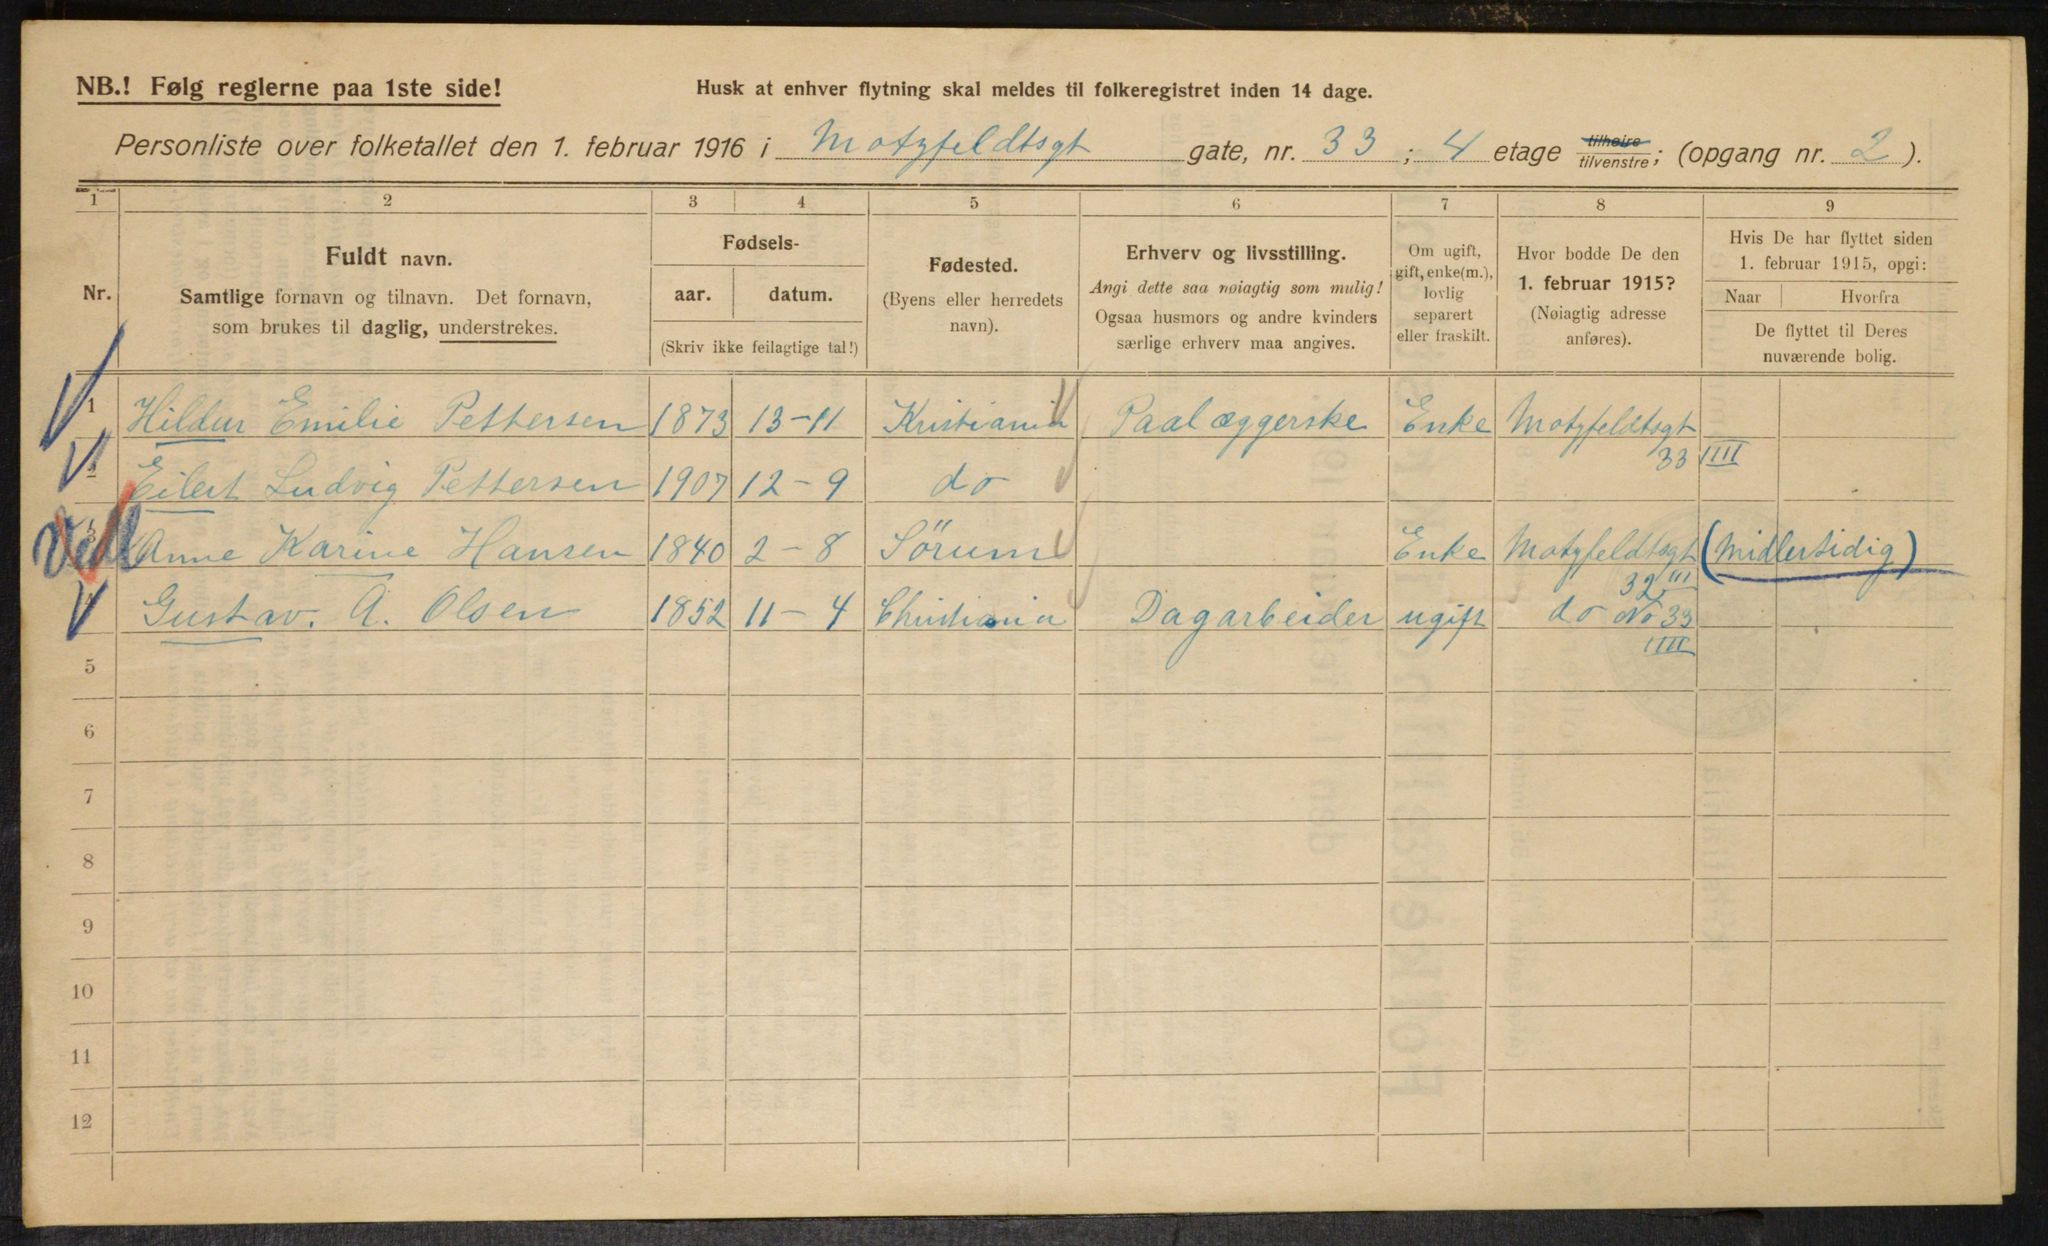 NB.! Følg reglerne paa 1ste side!
Husk at enhver flytning skal meldes til folkeregistret inden 14 dage.
Personliste over folketallet den 1. februar 1916 i Motzfeldtsgt gate, nr. 33 ; 4 etage tilhøire tilvenstre; (opgang nr. 2 ).
1 2 3 4 5 6 7 8 9
Nr.
Fuldt navn.
Samtlige fornavn og tilnavn. Det fornavn,
som brukes til daglig, understrekes.
Fødsels-
aar. datum.
(Skriv ikke feilagtige tal!)
Fødested.
(Byens eller herredets
navn).
Erhverv og livsstilling.
Angi dette saa nøiagtig som mulig!
Ogsaa husmors og andre kvinders
særlige erhverv maa angives.
Om ugift,
gift, enke(m.),
lovlig
separert
eller fraskilt.
Hvor bodde De den
1. februar 1915?
(Nøiagtig adresse
anføres).
Hvis De har flyttet siden
1. februar 1915, opgi:
Naar Hvorfra
De flyttet til Deres
nuværende bolig.
1 Hildur Emilie Pettersen 1873 13-11 Kristiania Paalæggerske Enke Motzfeldtsgt
33 IIII
2 Eilert Ludvig Pettersen 1907 12-9 do
3 Anne Karine Hansen 1840 2-8 Sörum Enke Motzfeldtsgt (Midlertidig)
32 III
4 Gustav. A. Olsen 1852 11-4 Christiania Dagarbeider ugift do No 33
IIII
5
6
7
8
9
10
11
12